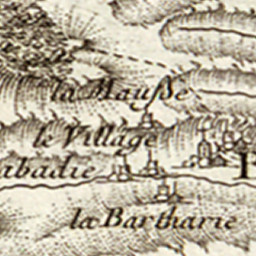 la Mausse
le Village
abadie
la Bartharie